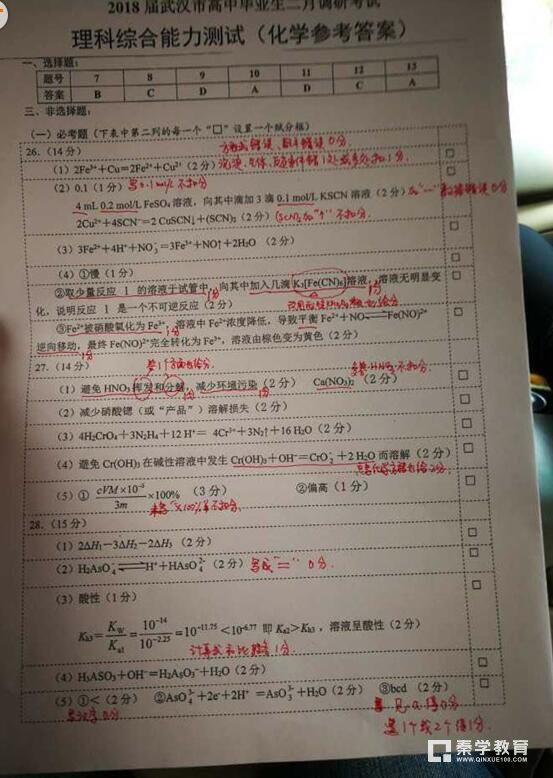 2018 届武汉市高中毕业生二月调研考试
理科综合能力测试（化学参考答案）
一、选择题：
题号 7 8 9 10 11 12 13
答案 B C D A D C A
三、非选择题：
（一）必考题（下表中第二列的每一个“□”设置一个赋分框）
26.（14 分）
（1）2Fe³⁺+Cu=2Fe²⁺+Cu²⁺（2 分）
（2）0.1（1 分）写0.1mol/L 不扣分
4 mL 0.2 mol/L FeSO₄ 溶液，向其中滴加 3 滴 0.1 mol/L KSCN 溶液（2 分）
2Cu²⁺+4SCN⁻=2 CuSCN↓+(SCN)₂（2 分）(SCN)₂ 加“↑”不扣分
（3）3Fe²⁺+4H⁺+NO₃⁻=3Fe³⁺+NO↑+2H₂O （2 分）
（4）①慢（1 分）
②取少量反应 Ⅰ 的溶液于试管中，向其中加入几滴 K₃[Fe(CN)₆]溶液，溶液无明显变
化，说明反应 Ⅰ 是一个不可逆反应（2 分）
③Fe²⁺被硝酸氧化为 Fe³⁺，溶液中 Fe²⁺浓度降低，导致平衡 Fe²⁺+NO⇌Fe(NO)²⁺
逆向移动，最终 Fe(NO)²⁺完全转化为 Fe³⁺，溶液由棕色变为黄色（2 分）
27.（14 分）
（1）避免 HNO₃ 挥发和分解，减少环境污染（2 分） Ca(NO₃)₂（2 分）
（2）减少硝酸锶（或“产品”）溶解损失（2 分）
（3）4H₂CrO₄+3N₂H₄+12 H⁺= 4Cr³⁺+3N₂↑+16 H₂O（2 分）
（4）避免 Cr(OH)₃ 在碱性溶液中发生 Cr(OH)₃+OH⁻=CrO₂⁻+2 H₂O 而溶解（2 分）
（5）① cVM×10⁻³/3m ×100% （3 分） ②偏高（1 分）
未写“×100%”不扣分
28.（15 分）
（1）2ΔH₁−3ΔH₂−2ΔH₃（2 分）
（2）H₂AsO₄⁻⇌H⁺+HAsO₄²⁻（2 分）写成“=” 0分
（3）酸性（1 分）
Kh3=KW/Ka1=10⁻¹⁴/10⁻²·²⁵=10⁻¹¹·⁷⁵<10⁻⁶·⁷⁷ 即 Ka2>Kh3，溶液呈酸性（2 分）
（4）H₃ASO₃+OH⁻=H₂AsO₃⁻+H₂O（2 分）
（5）①<（2 分） ②AsO₄³⁻+2e⁻+2H⁺ =AsO₃³⁻+H₂O（2 分） ③bcd （2 分）
选1个或2个得1分
秦学教育
WWW.QINXUE100.COM